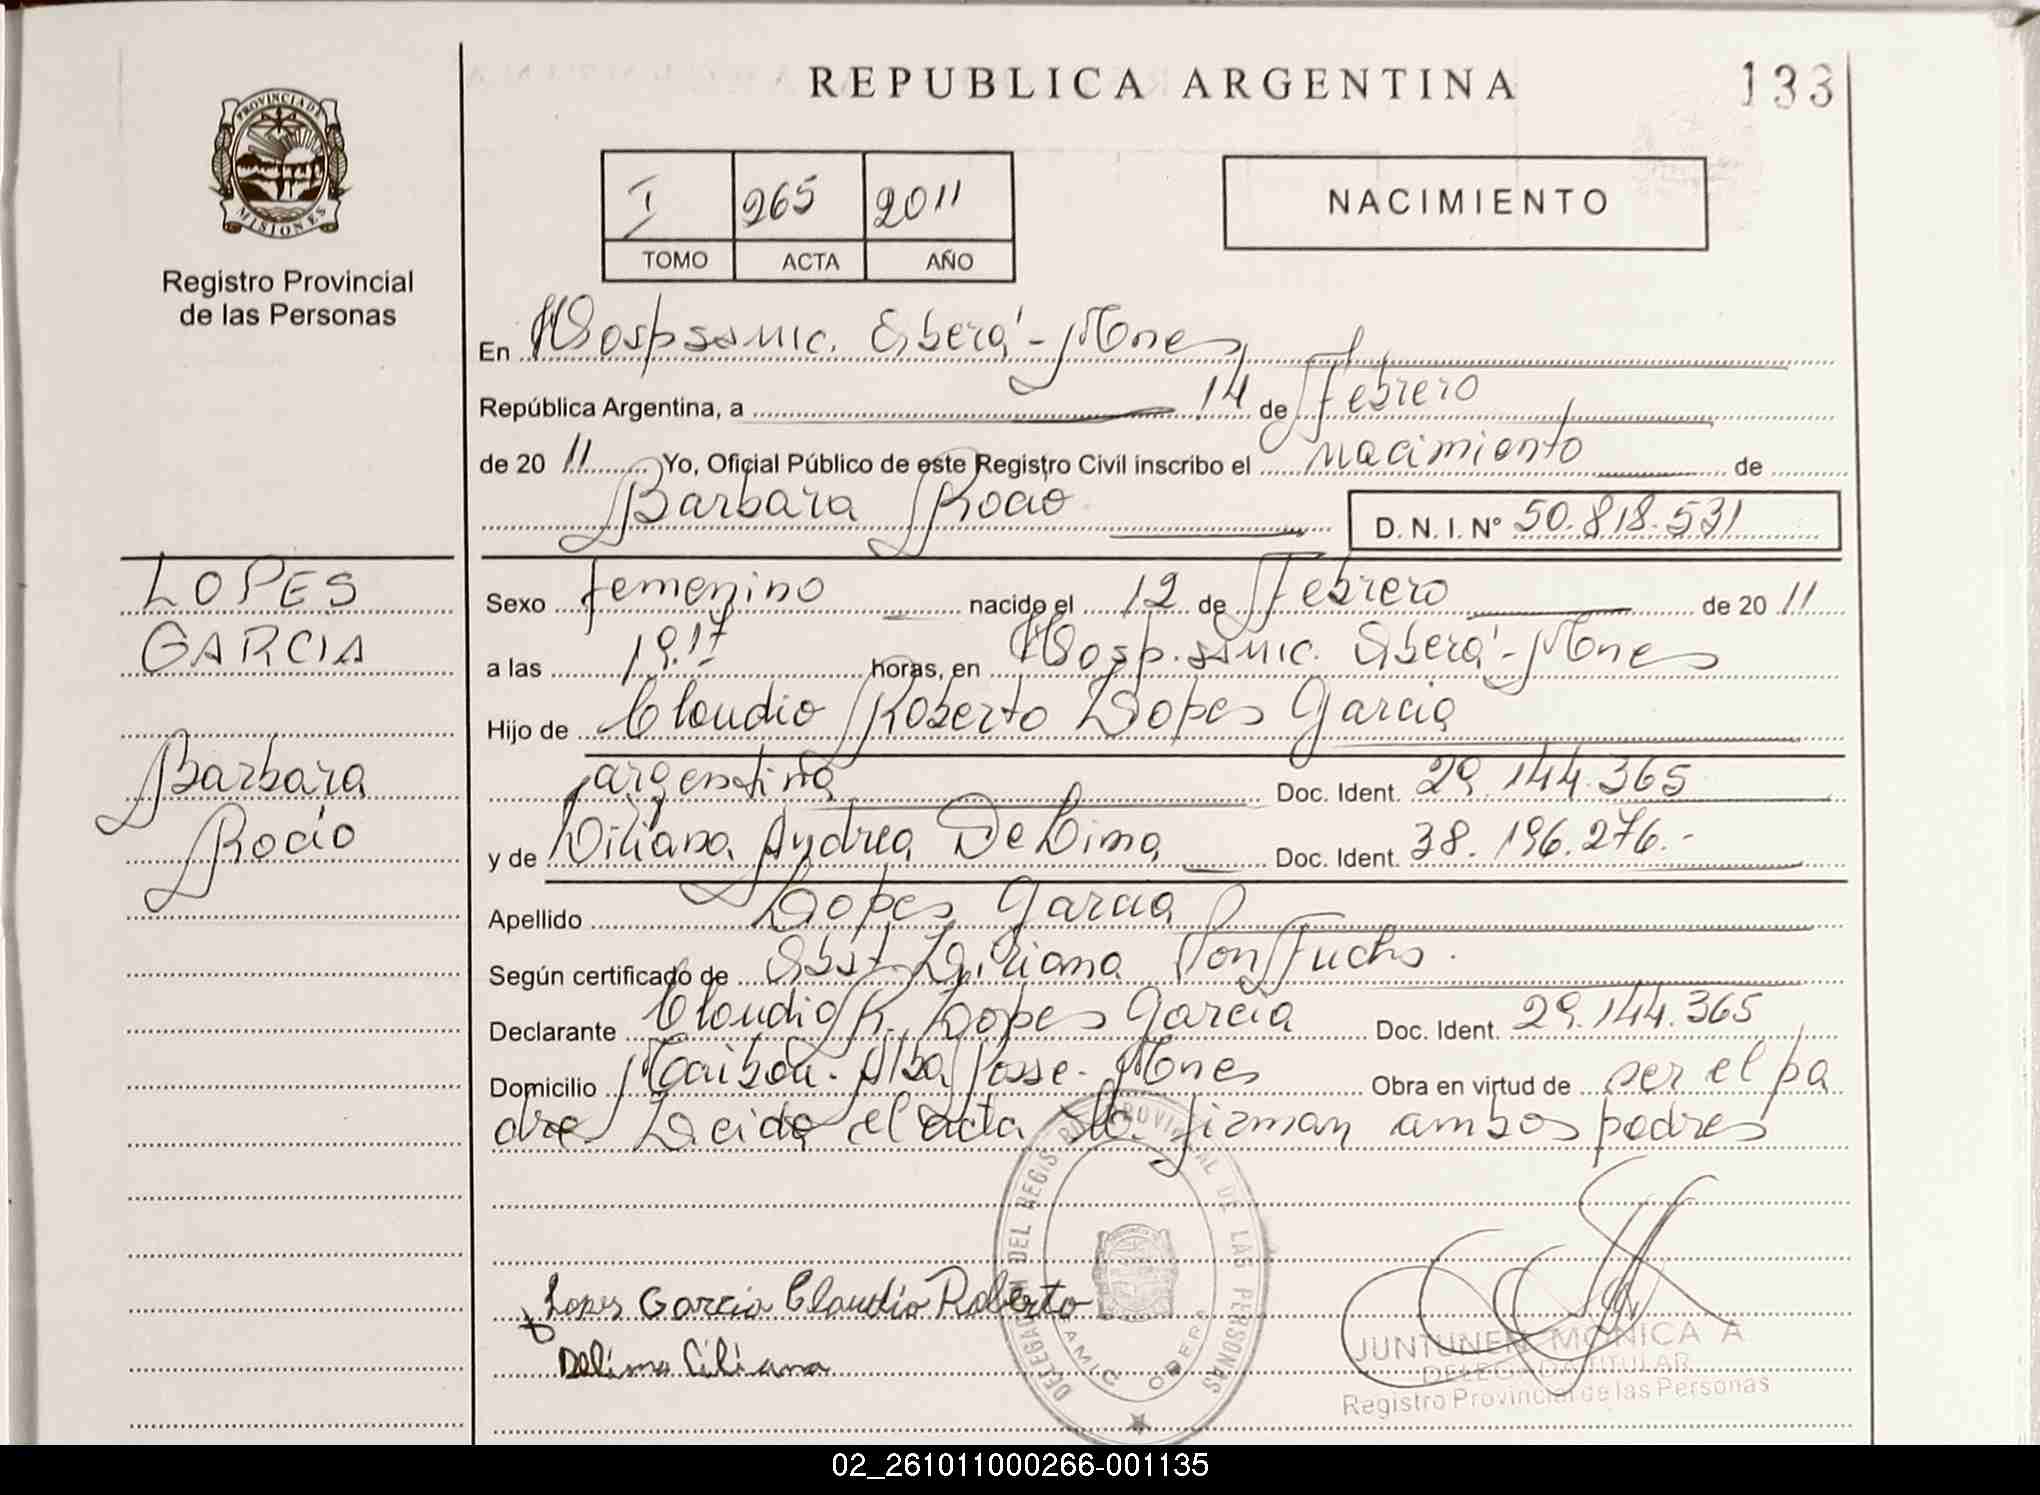 REPUBLICA ARGENTINA
133
PROVINCIA DE MISIONES
Registro Provincial
de las Personas
I 265 2011
TOMO ACTA AÑO
NACIMIENTO
En Hosp. SAMIC. Oberá - Mnes
República Argentina, a 14 de Febrero
de 20 11 Yo, Oficial Público de este Registro Civil inscribo el nacimiento de
Barbara Rocio
D. N. I. Nº 50.818.531
LOPES
GARCIA
Barbara
Rocio
Sexo femenino nacido el 12 de Febrero de 20 11
a las 19.17 horas, en Hosp. SAMIC. Oberá - Mnes
Hijo de Claudio Roberto Lopes Garcia
argentina Doc. Ident. 29.144.365
y de Liliana Andrea De Lima Doc. Ident. 38.196.276.-
Apellido Lopes Garcia
Según certificado de Obst. Liliana Von Fuchs.
Declarante Claudio R. Lopes Garcia Doc. Ident. 29.144.365
Domicilio Alba Posse - Mnes Obra en virtud de ser el pa
dre Leida el acta la firman ambos padres
Lopes Garcia Claudio Roberto
Delima Liliana
DELEGACION DEL REGISTRO PROVINCIAL DE LAS PERSONAS
SAMIC OBERA
JUNTUNEN MONICA A
DELEGADA TITULAR
Registro Provincial de las Personas
02_261011000266-001135